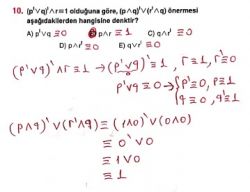 10. (p'∨q)'∧r≡1 olduğuna göre, (p∧q)'∨(r'∧q) önermesi
aşağıdakilerden hangisine denktir?
A) p'∨q ≡0 B) p∧r ≡1 C) q∧r' ≡0
D) p∧r' ≡0 E) q∨r' ≡0
(p'∨q)'∧r≡1 → (p'∨q)'≡1 , r≡1, r'≡0
p'∨q≡0 → p'≡0, p≡1
q≡0, q'≡1
(p∧q)'∨(r'∧q)≡(1∧0)'∨(0∧0)
≡ 0'∨0
≡ 1∨0
≡ 1